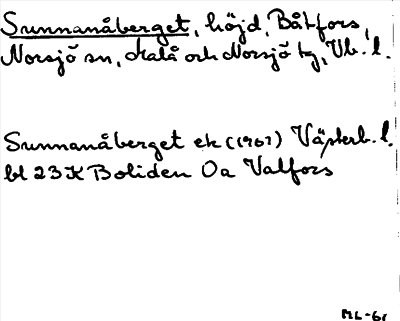 Sunnanåberget, höjd, Båtfors,
Norsjö sn, Malå och Norsjö tg, Vb. l.
Sunnanåberget ek (1967) Västerb. l.
bl 23 K Boliden 0a Valfors